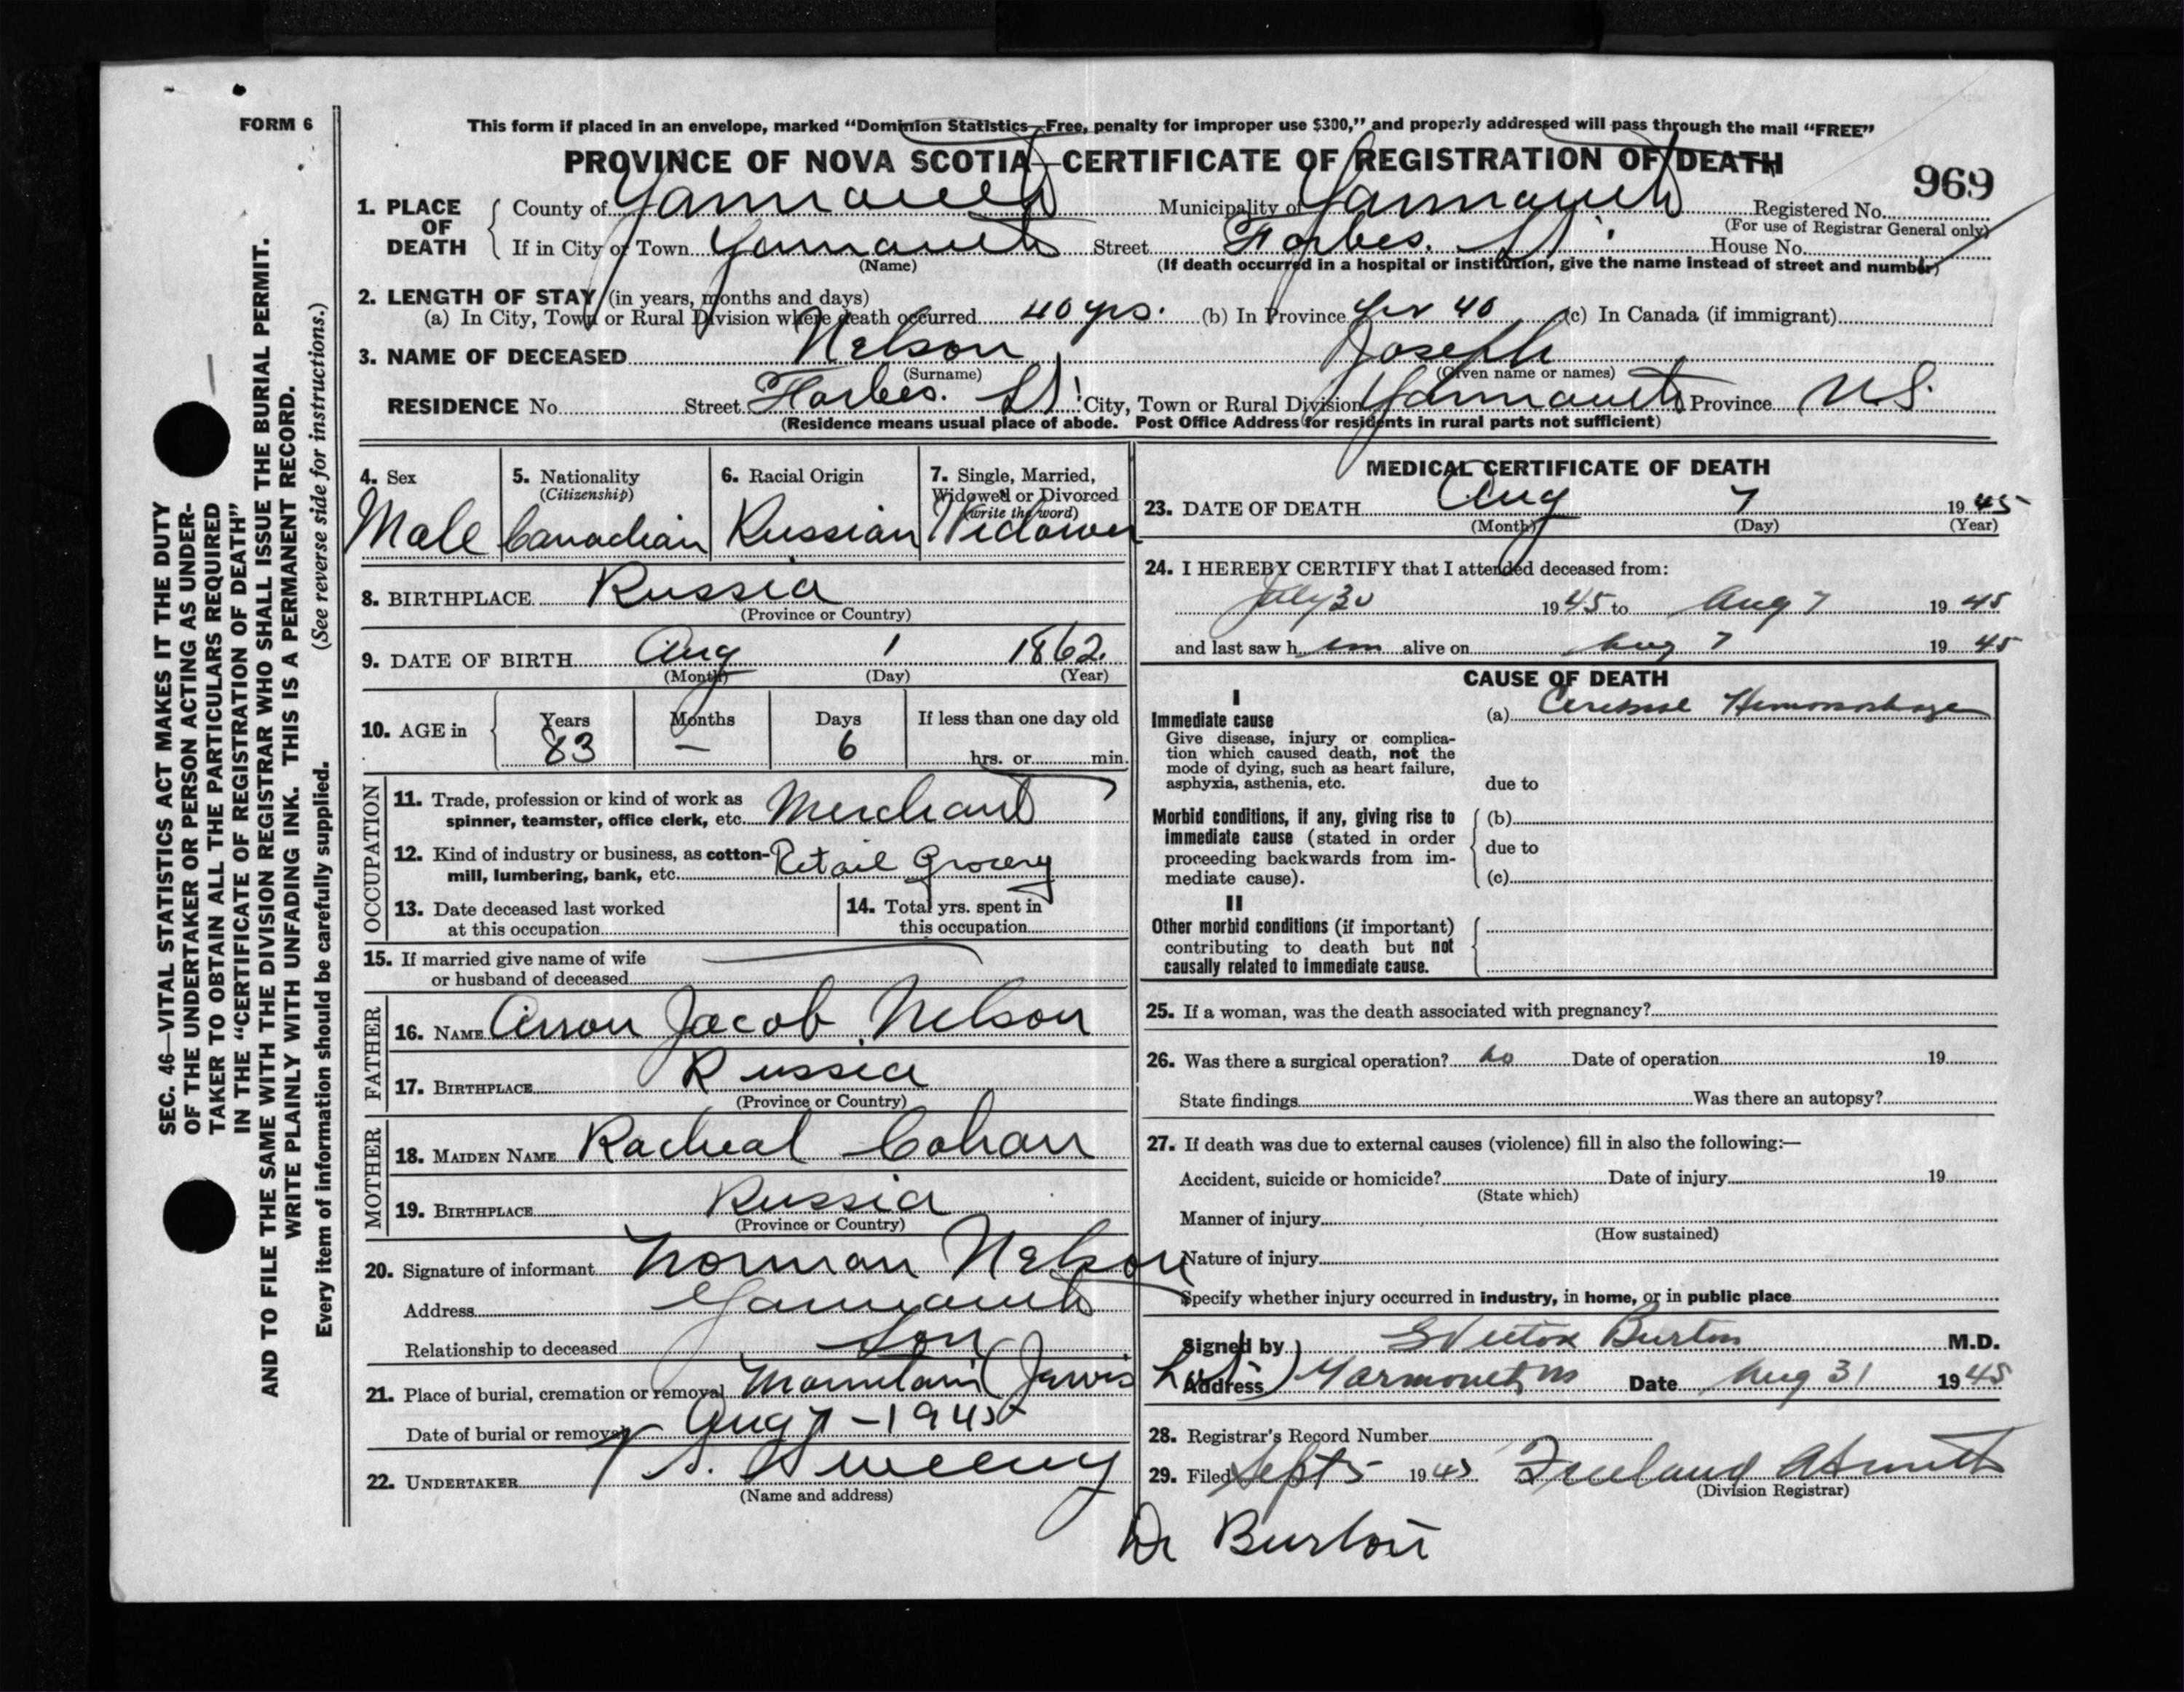 FORM 6
This form if placed in an envelope, marked "Dominion Statistics—Free, penalty for improper use $300," and properly addressed will pass through the mail "FREE"
PROVINCE OF NOVA SCOTIA—CERTIFICATE OF REGISTRATION OF DEATH
969
1. PLACE OF DEATH { County of Yarmouth Municipality of Yarmouth Registered No.
(For use of Registrar General only)
If in City or Town Yarmouth Street Forbes. St. House No.
(Name) (If death occurred in a hospital or institution, give the name instead of street and number)
2. LENGTH OF STAY (in years, months and days)
(a) In City, Town or Rural Division where death occurred 40 yrs. (b) In Province yrs 40 (c) In Canada (if immigrant)
3. NAME OF DECEASED Nelson Joseph
(Surname) (Given name or names)
RESIDENCE No. Street Forbes. St. City, Town or Rural Division Yarmouth Province N.S.
(Residence means usual place of abode. Post Office Address for residents in rural parts not sufficient)
4. Sex 5. Nationality (Citizenship) 6. Racial Origin 7. Single, Married, Widowed or Divorced (write the word)
Male Canadian Russian Widower
8. BIRTHPLACE Russia
(Province or Country)
9. DATE OF BIRTH Aug 1 1862.
(Month) (Day) (Year)
10. AGE in { Years Months Days If less than one day old
83 — 6 hrs. or min.
OCCUPATION
11. Trade, profession or kind of work as
spinner, teamster, office clerk, etc. Merchant
12. Kind of industry or business, as cotton-
mill, lumbering, bank, etc. Retail Grocery
13. Date deceased last worked
at this occupation
14. Total yrs. spent in
this occupation
15. If married give name of wife
or husband of deceased
FATHER
16. NAME Arron Jacob Nelson
17. BIRTHPLACE Russia
(Province or Country)
MOTHER
18. MAIDEN NAME Racheal Cohan
19. BIRTHPLACE Russia
(Province or Country)
20. Signature of informant Norman Nelson
Address Yarmouth
Relationship to deceased Son
21. Place of burial, cremation or removal Mountain (Jarvis Lot)
Date of burial or removal Aug 7 - 1945
22. UNDERTAKER V S. Sweeny
(Name and address)
MEDICAL CERTIFICATE OF DEATH
23. DATE OF DEATH Aug 7 1945
(Month) (Day) (Year)
24. I HEREBY CERTIFY that I attended deceased from:
July 30 1945 to Aug 7 1945
and last saw him alive on Aug 7 1945
CAUSE OF DEATH
I
Immediate cause
Give disease, injury or complica-
tion which caused death, not the
mode of dying, such as heart failure,
asphyxia, asthenia, etc.
(a) Cerebral Hemorrhage
due to
Morbid conditions, if any, giving rise to
immediate cause (stated in order
proceeding backwards from im-
mediate cause).
(b)
due to
(c)
II
Other morbid conditions (if important)
contributing to death but not
causally related to immediate cause.
25. If a woman, was the death associated with pregnancy?
26. Was there a surgical operation? no Date of operation 19
State findings Was there an autopsy?
27. If death was due to external causes (violence) fill in also the following:—
Accident, suicide or homicide? Date of injury 19
(State which)
Manner of injury
(How sustained)
Nature of injury
Specify whether injury occurred in industry, in home, or in public place
Signed by Burton M.D.
Address Yarmouth NS Date Aug 31 1945
28. Registrar's Record Number
29. Filed Sept 5 1945
(Division Registrar)
Dr Burton
SEC. 46—VITAL STATISTICS ACT MAKES IT THE DUTY
OF THE UNDERTAKER OR PERSON ACTING AS UNDER-
TAKER TO OBTAIN ALL THE PARTICULARS REQUIRED
IN THE "CERTIFICATE OF REGISTRATION OF DEATH"
AND TO FILE THE SAME WITH THE DIVISION REGISTRAR WHO SHALL ISSUE THE BURIAL PERMIT.
WRITE PLAINLY WITH UNFADING INK. THIS IS A PERMANENT RECORD.
Every item of information should be carefully supplied. (See reverse side for instructions.)